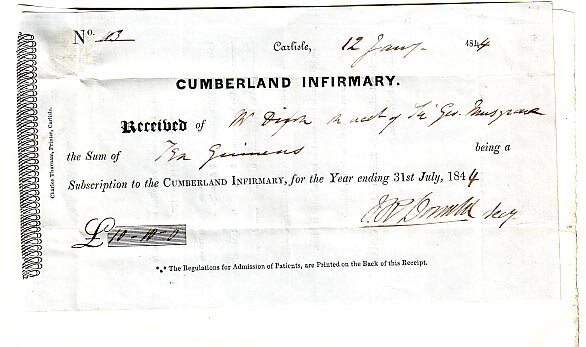 No. 13
Carlisle, 12 Jany. 1844
CUMBERLAND INFIRMARY.
Received of Mr on acct of Sir Geo. Musgrave
the Sum of Ten Guineas being a
Subscription to the CUMBERLAND INFIRMARY, for the Year ending 31st July, 1844
Secy
£ 10-10-0
*** The Regulations for Admission of Patients, are Printed on the Back of this Receipt.
Charles Thurnam, Printer, Carlisle.